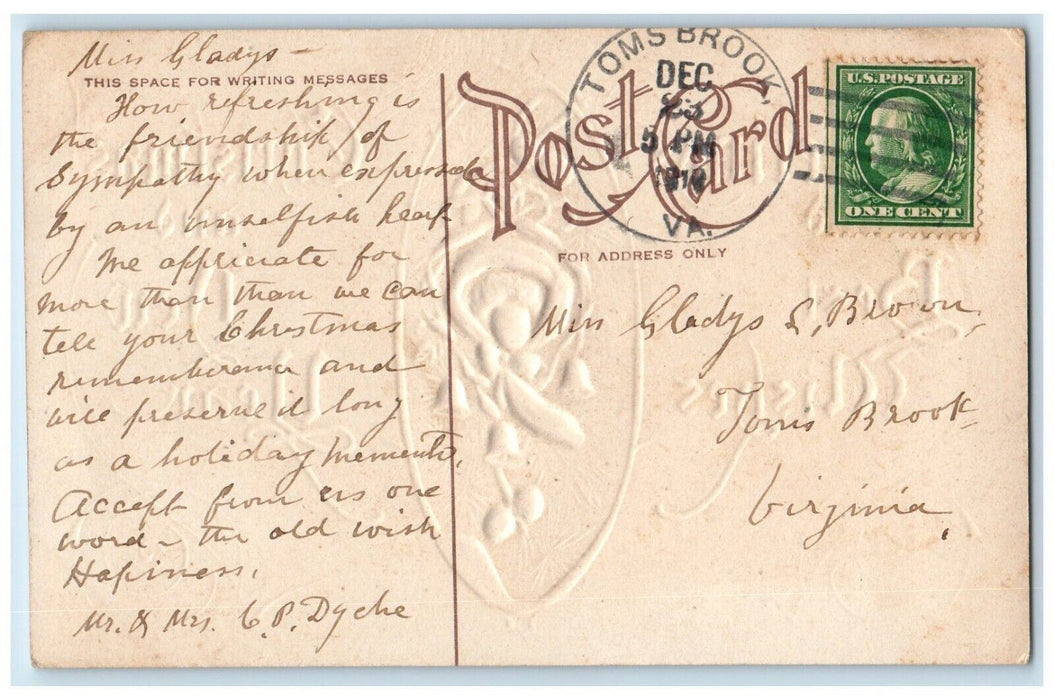 Miss Gladys –
THIS SPACE FOR WRITING MESSAGES
How refreshing is
the friendship of
Sympathy when expressed
by an unselfish heart
We appriciate for
more than than we can
tell your Christmas
rememberance and
will preserve it long
as a holiday memento,
Accept from us one
word – the old wish
Hapiness.
Mr. & Mrs. C. P. Dyche
Post Card
FOR ADDRESS ONLY
TOMS BROOK,
DEC
23
5 PM
VA.
U.S. POSTAGE
ONE CENT
Miss Gladys L. Brown,
Toms Brook
Virginia,
Christmas
Best
New
Wishes
Year